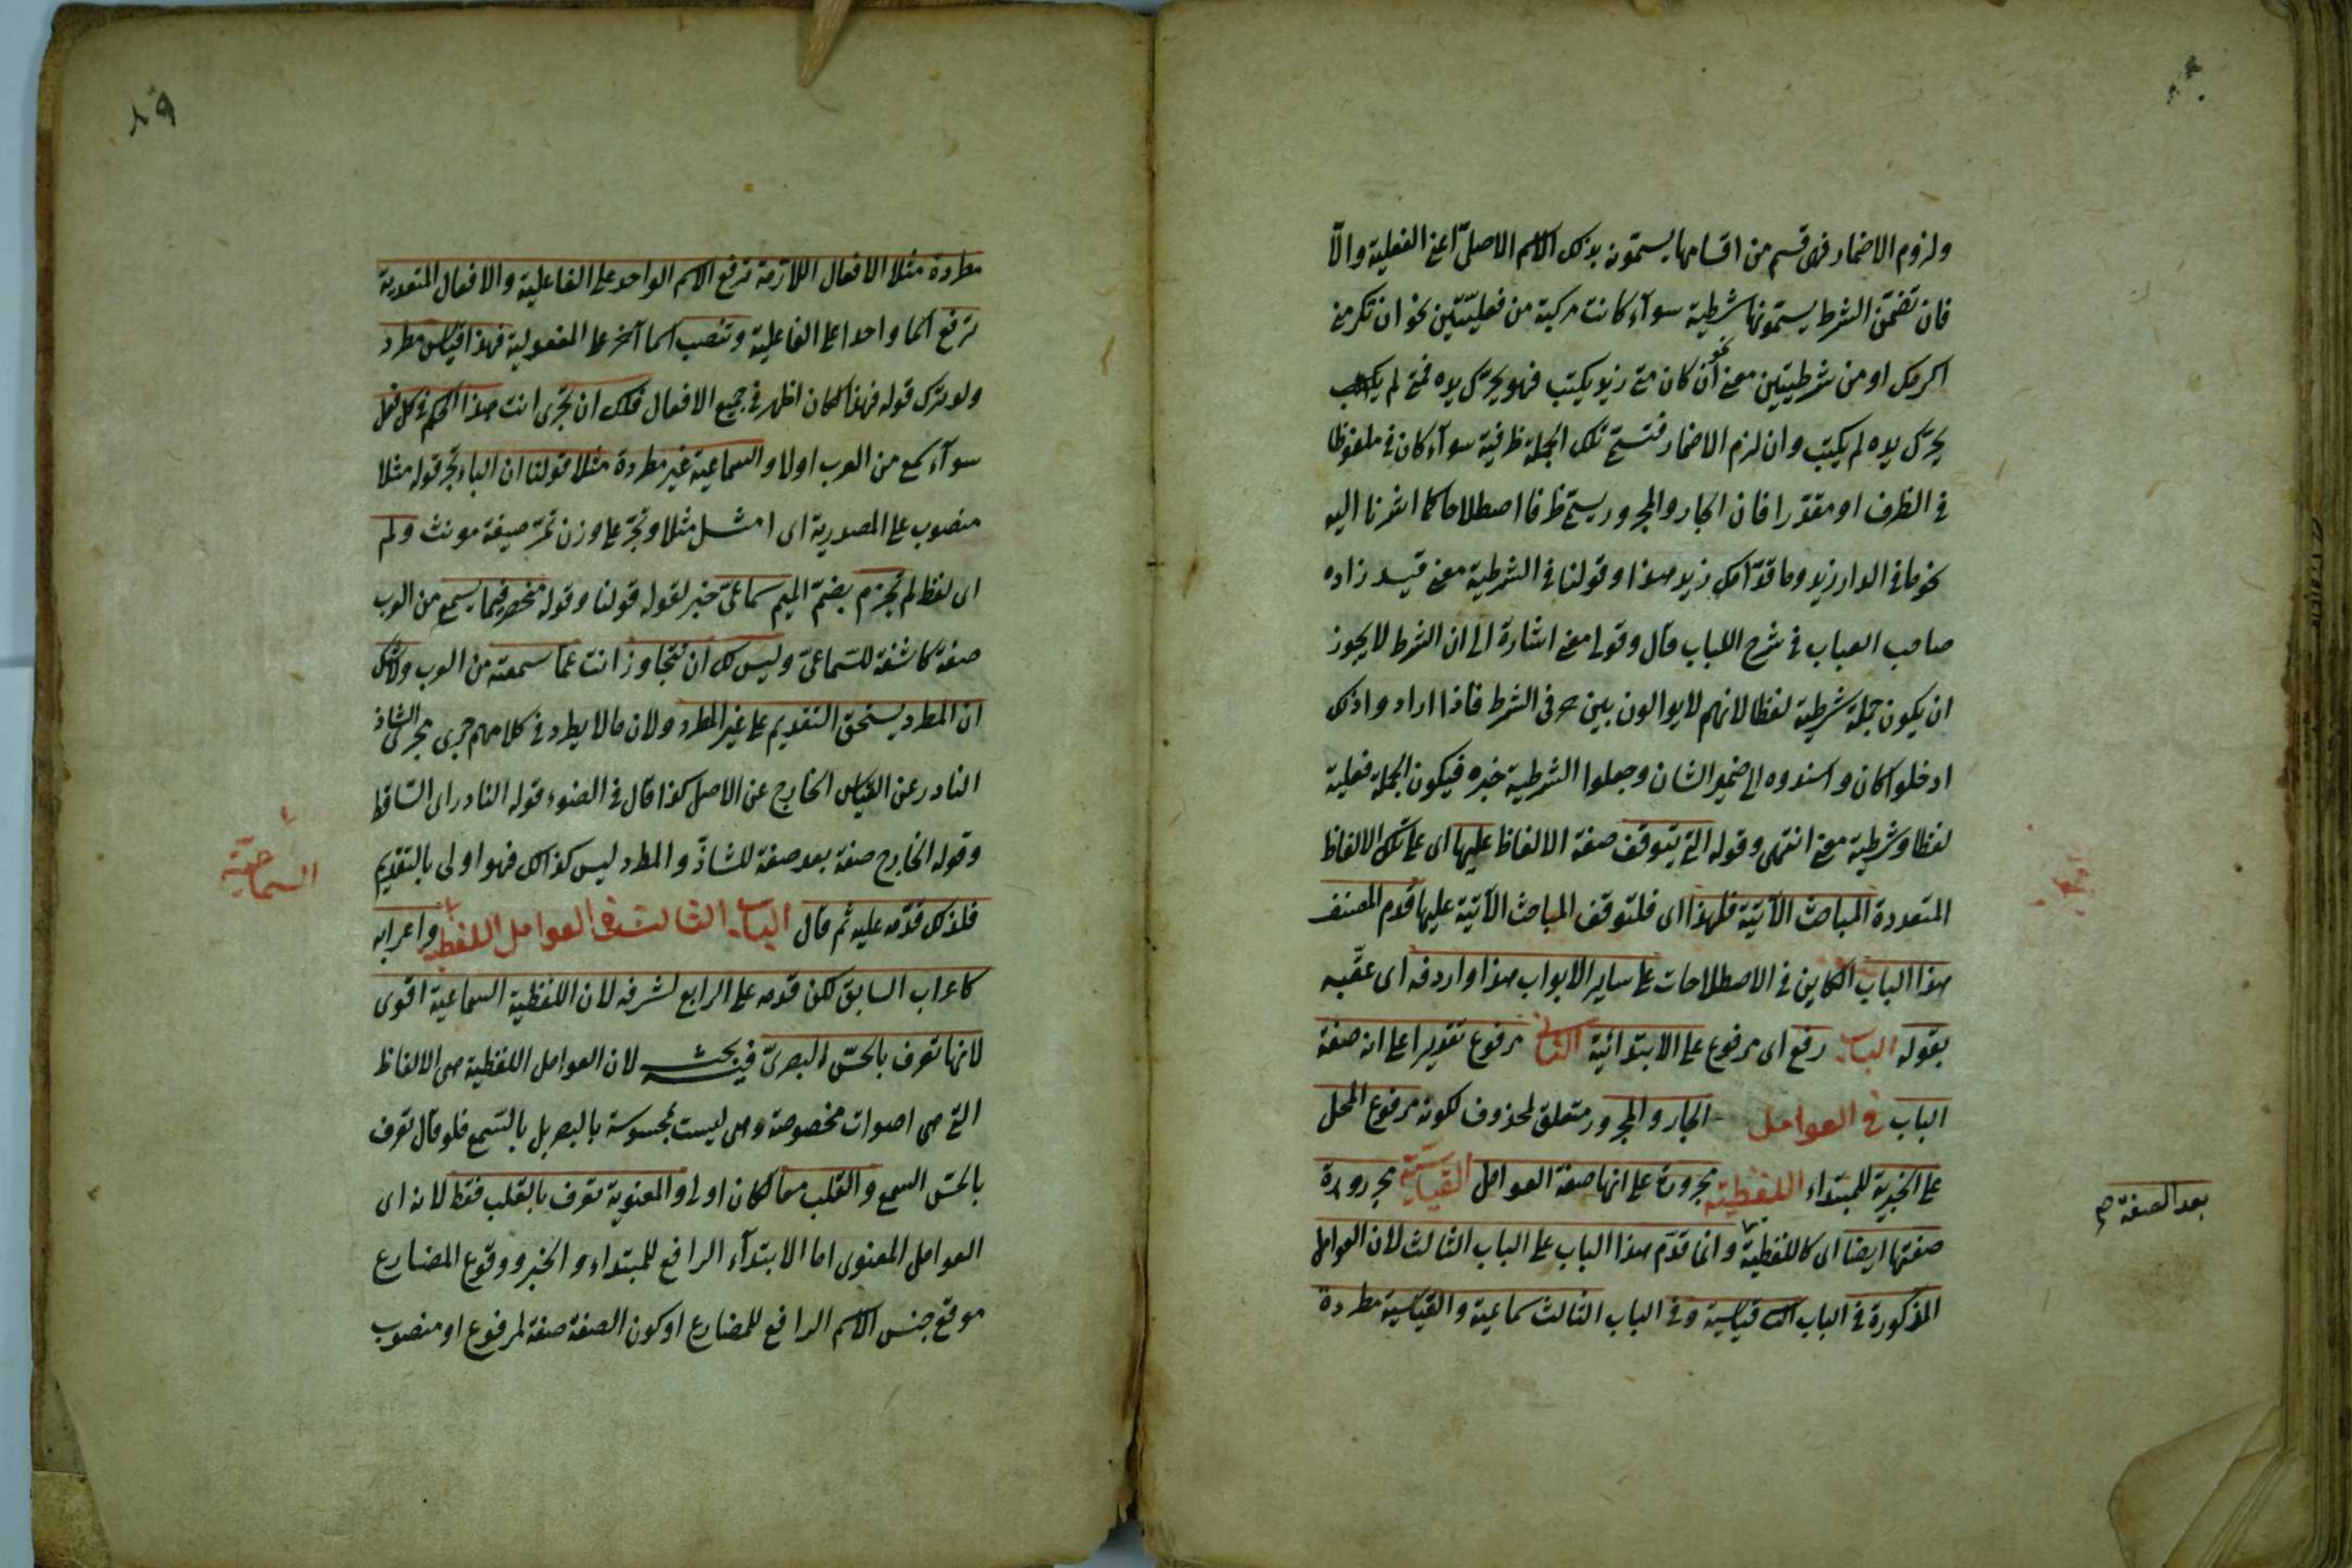 ولزوم الاضمار فى قسم من اقسامها يسمّونه بذلك الاسم الاصلىّ اعنى الفعلية والّا
فان تضمّن الشرط يسمّونها شرطية سوآء كانت مركبة من فعليّتين نحو ان تكرمنى
اكرمك او من شرطيتين معنى نحو ان كان متى زيد يكتب فهو يحرّك يده فمتى لم يكتب
يحرّك يده لم يكتب وان لزم الاضمار فتسمّى تلك الجملة ظرفية سوآء كان فى ملفوظا
فى الظرف او مقدّرا فان الجار والمجرور يسمّى ظرفا اصطلاحا كما اشرنا اليه
نحو ما فى الدار زيد وما قدّامك زيد هذا وقولنا فى الشرطية معنى قيد زاده
صاحب العباب فى شرح اللباب قال وقولى معنى اشارة الى ان الشرط لا يجوز
ان يكون جملة شرطية لفظا لانهم لا يوالون بين حرفى الشرط فاذا ارادوا ذلك
ادخلوا كان واسندوه الى ضمير الشان وجعلوا الشرطية خبره فيكون الجملة فعلية
لفظا وشرطية معنى انتهى وقوله التى يتوقف صفة الالفاظ عليها اى على تلك الالفاظ
المتعددة المباحث الآتية فلهذا اى فلتوقف المباحث الآتية عليها قدم المصنف
هذا الباب الكاين فى الاصطلاحات على ساير الابواب هذا واردفه اى عقّبه
بقوله الباب رفع اى مرفوع على الابتدائية الثانى مرفوع تقديرا على انه صفة
الباب فى العوامل الجار والمجرور متعلق لمحذوف لكونه مرفوع المحل
على الخبرية للمبتداء اللفظية مجرورة على انها صفة العوامل القياسية مجرورة
صفتها ايضا اى كاللفظية وانما قدّم هذا الباب على الباب الثالث لان العوامل
المذكورة فى الباب الثانى قياسية وفى الباب الثالث سماعية والقياسية مطردة
بعد الصفة صح
٨٩
مطردة مثلا الافعال اللازمة ترفع الاسم الواحد على الفاعلية والافعال المتعدية
ترفع اسما واحدا على الفاعلية وتنصب اسما آخر على المفعولية فهذا قياس مطرد
ولو ترك قوله فهذا لكان اظهر فى جميع الافعال فلك ان تجرى انت هذا الحكم فى كل فعل
سوآء سمع من العرب اولا والسماعية غير مطردة مثلا قولنا ان الباء تجر قوله مثلا
منصوب على المصدرية اى امثل مثلا وتجرّ على وزن تمرّ صيغة مونث ولم
اى لفظ لم تجزم بضمّ الميم سماعىّ خبر لقوله قولنا وقوله منحصر فيما يسمع من العرب
صفة كاشفة للسّماعىّ وليس لك ان تتجاوز انت عمّا سمعته من العرب ولا شك
ان المطرد يستحق التقديم على غير المطرد ولان ما لا يطرد فى كلامهم جرى مجرى الشاذ
النادر عن القياس الخارج عن الاصل كذا قال فى الضوء قوله النادر اى الساقط
وقوله الخارج صفة بعد صفة للشاذّ والمطرد ليس كذالك فهو اولى بالتقديم
فلذلك قدّمه عليه ثم قال الباب الثالث فى العوامل اللفظية واعرابه
السماعية
كاعراب السابق لكن قدمه على الرابع لشرفه لان اللفظية السماعية اقوى
لانها تعرف بالحسّ البصرىّ فيه بحث لان العوامل اللفظية هى الالفاظ
التى هى اصوات مخصوصة وهى ليست بمحسوسة بالبصر بل بالسّمع فلو قال تعرف
بالحسّ السمع والقلب معا لكان اولى والمعنوية تعرف بالقلب فقط لانه اى
العوامل المعنوى اما الابتدآء الرافع للمبتداء والخبر ووقوع المضارع
موقع جنس الاسم الرافع للمضارع او كون الصفة صفة لمرفوع او منصوب